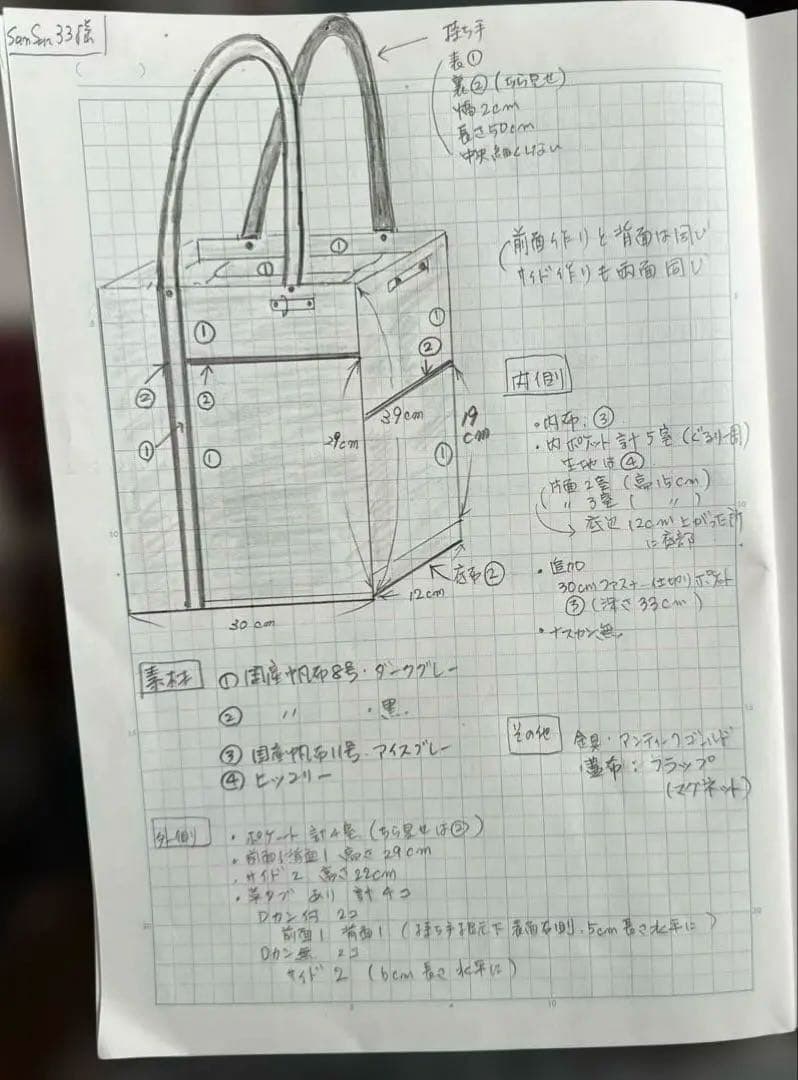 SanSan33様
( )
持ち手
表①
裏②(ちら見せ)
幅2cm
長さ50cm
中央細くしない
(前面作りと背面は同じ
サイド作りも両面同じ
①
①
①
①
②
②
②
①
①
39cm
29cm
19
cm
①
底布②
12cm
30cm
内側
・内布:③
・内ポケット計5室(ぐるり一周)
生地は④
片面2室(高15cm)
〃3室(〃)
→底辺12cm上がった所
に底部
・追加
30cmファスナー仕切りポケット
③(深さ33cm)
・ナスカン無
素材
①国産帆布8号・ダークグレー
②〃・黒
③国産帆布11号・アイスグレー
④ヒッコリー
その他
金具・アンティークゴールド
蓋布:フラップ
(マグネット)
外側
・ポケット計4室(ちら見せは②)
・前面1背面1高さ29cm
・サイド2高さ22cm
・革タブあり計4コ
Dカン付2コ
前面1背面1(持ち手根元下表面右側.5cm長さ水平に)
Dカン無2コ
サイド2(6cm長さ水平に)